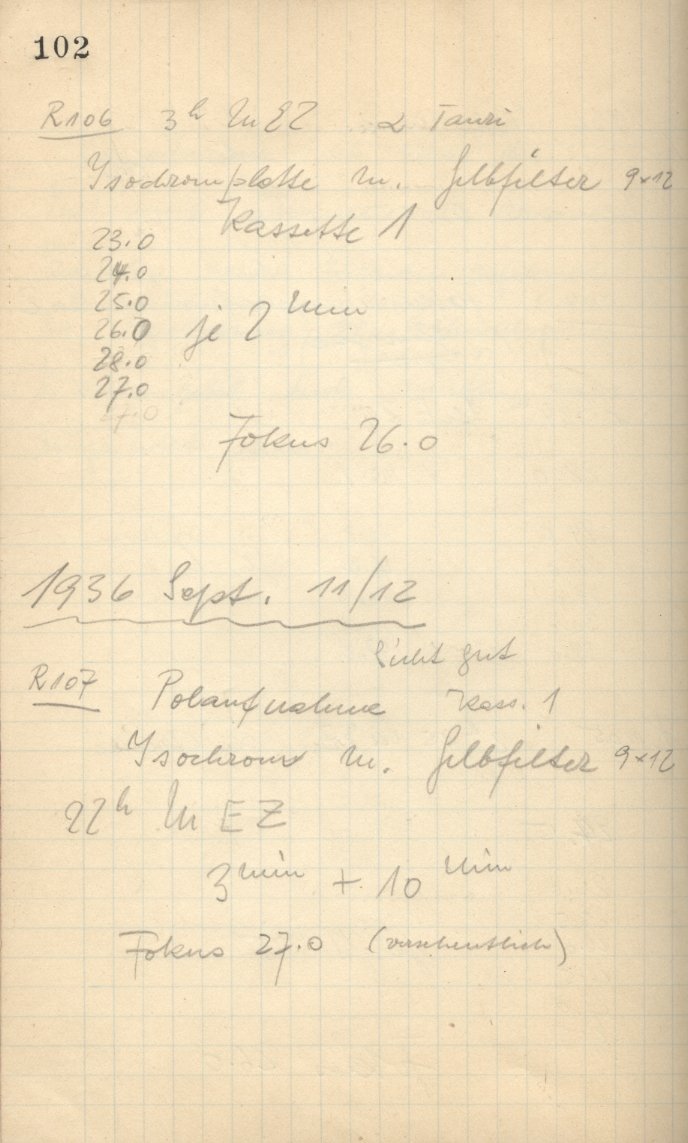 102
R106 3h MEZ α Tauri
Isochromplatte m. Gelbfilter 9×12
Kassette 1
23.0
24.0
25.0
26.0 je 2 Min
28.0
27.0
27.0
Fokus 26.0
1936 Sept. 11/12
Sicht gut
R107 Polaufnahme Kass. 1
Isochrom m. Gelbfilter 9×12
22h MEZ
3min + 10 Min
Fokus 27.0 (versehentlich)